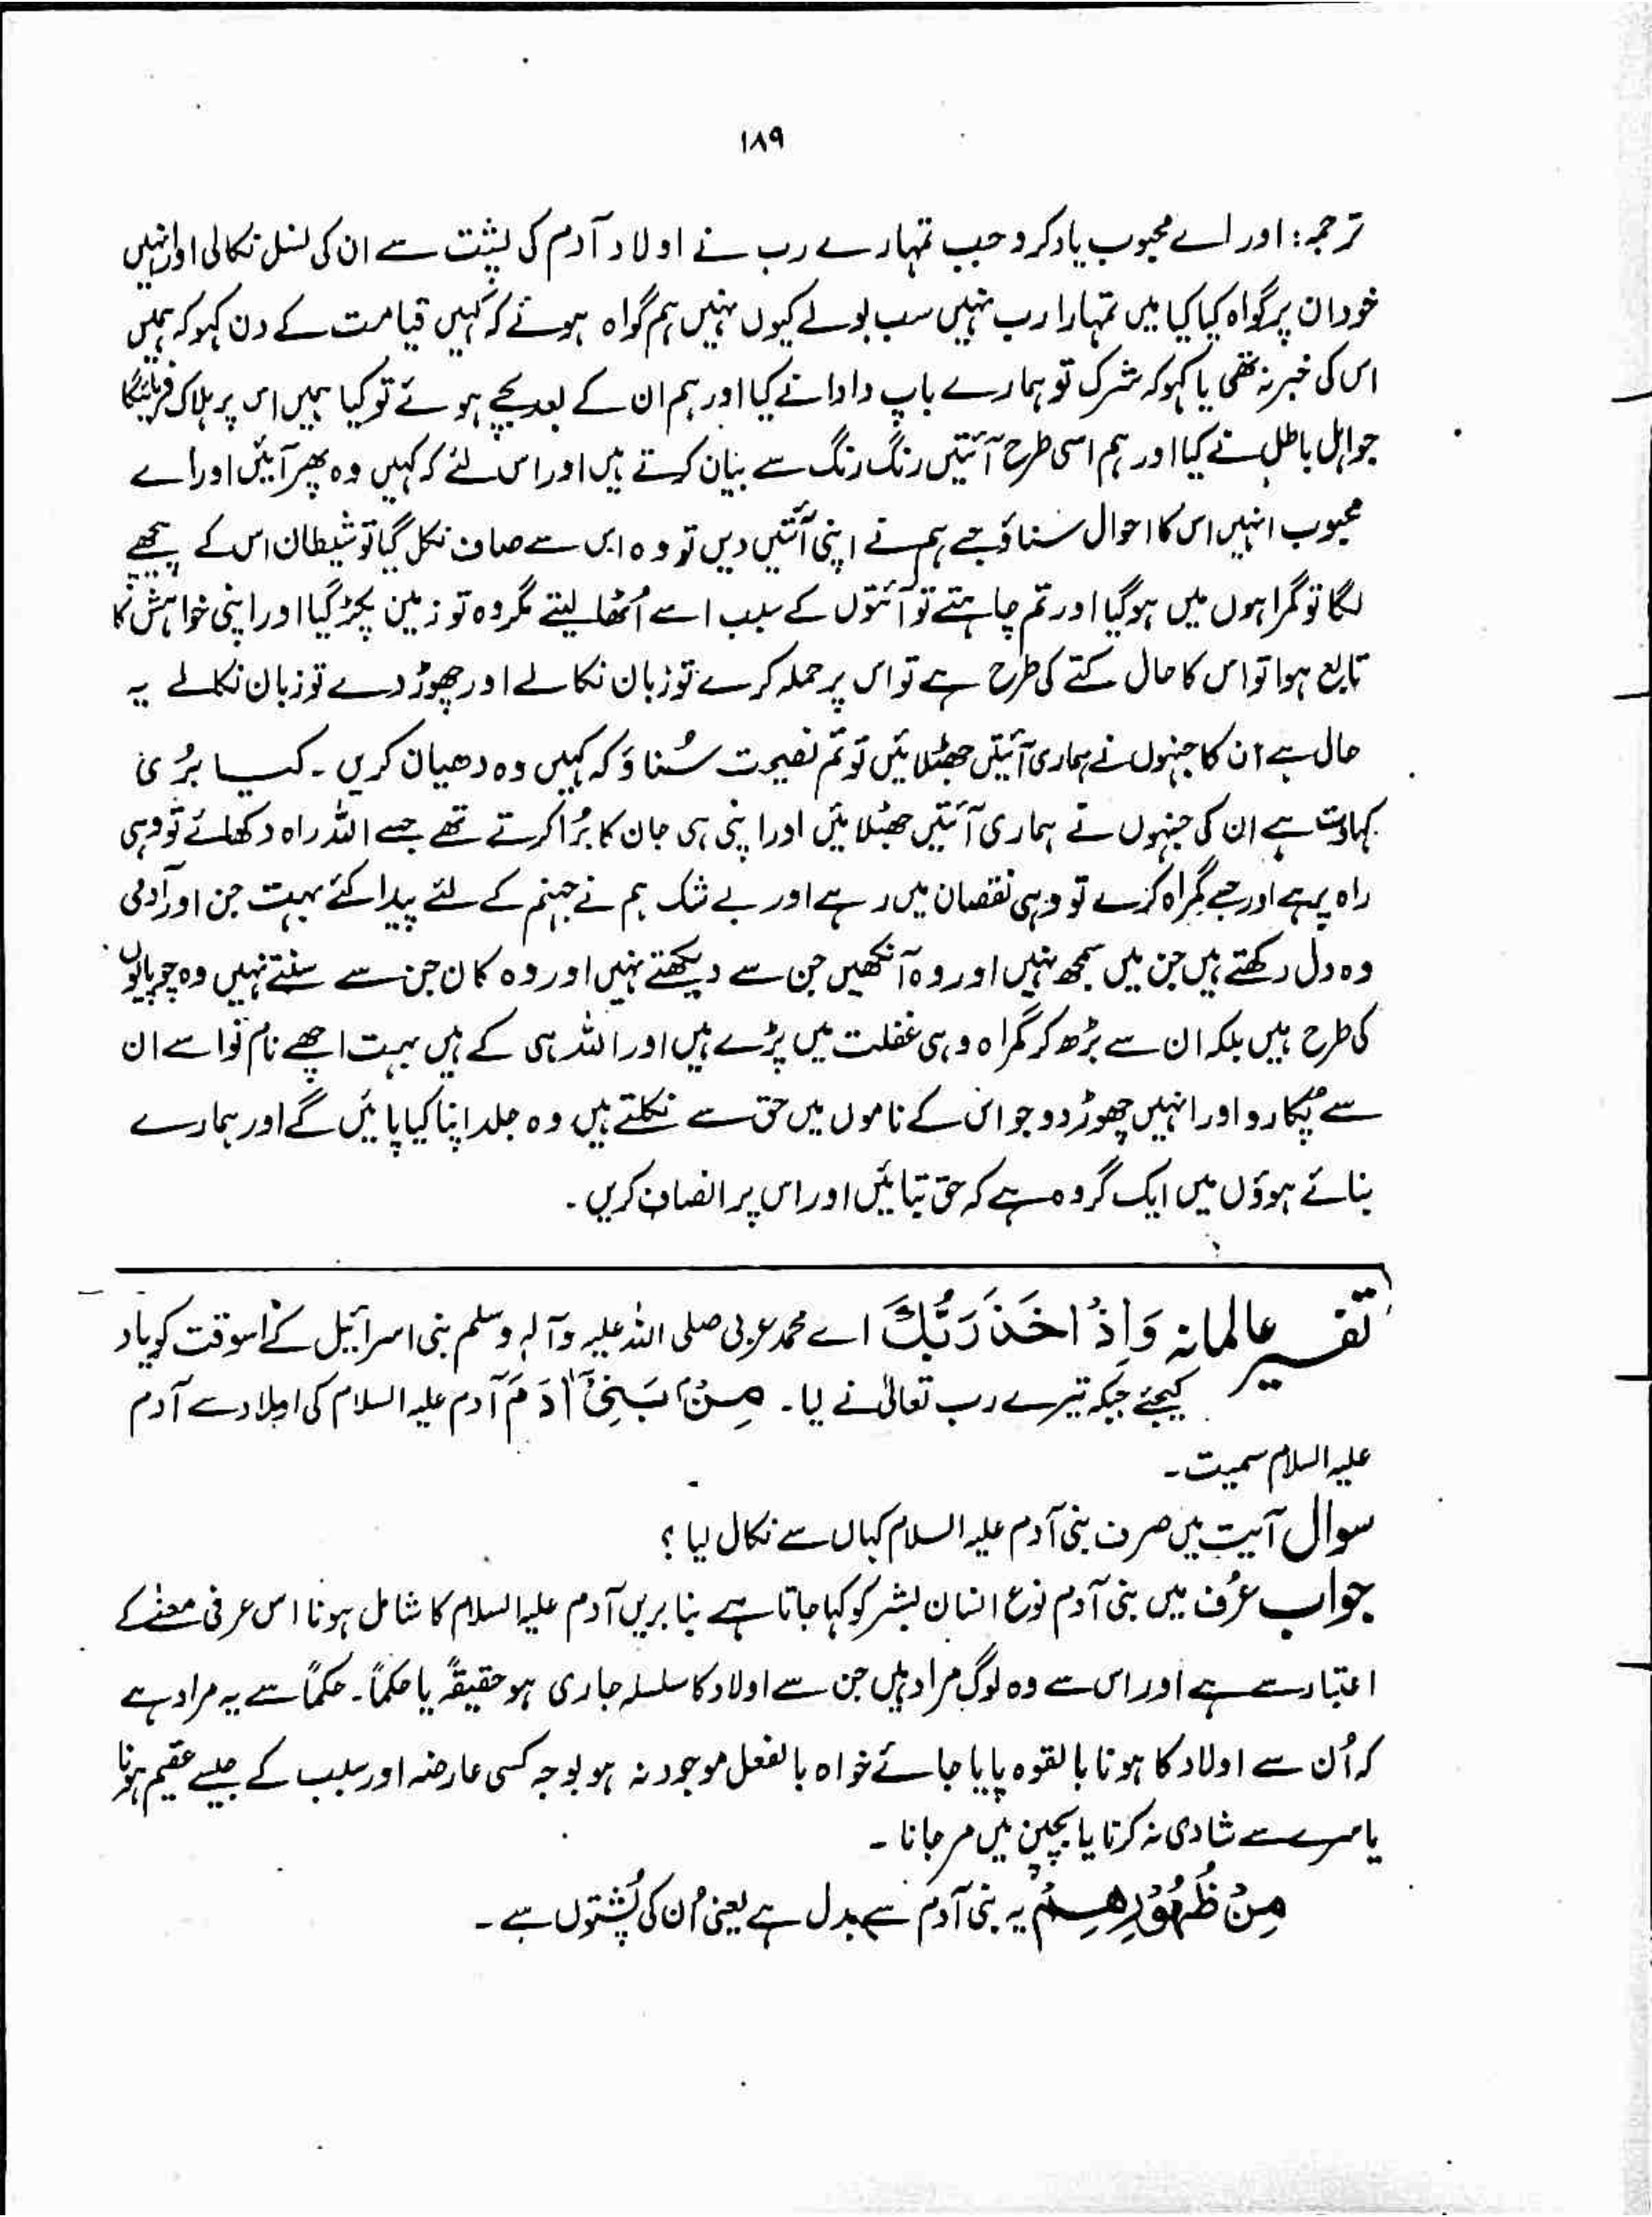 ۱۸۹
ترجمہ: اور اے محبوب یاد کرو جب تمہارے رب نے اولاد آدم کی پشت سے ان کی نسل نکالی اور انہیں
خود ان پر گواہ کیا کیا میں تمہارا رب نہیں سب بولے کیوں نہیں ہم گواہ ہوئے کہ کہیں قیامت کے دن کہو کہ ہمیں
اس کی خبر نہ تھی یا کہو کہ شرک تو ہمارے باپ دادا نے کیا اور ہم ان کے بعد بچے ہوئے تو کیا ہمیں اس پر ہلاک فرمائیگا
جو اہل باطل نے کیا اور ہم اسی طرح آئتیں رنگ رنگ سے بیان کرتے ہیں اور اس لئے کہ کہیں وہ پھر آئیں اور اے
محبوب انہیں اس کا احوال سناؤ جسے ہم نے اپنی آئتیں دیں تو وہ اس سے صاف نکل گیا تو شیطان اس کے پیچھے
لگا تو گمراہوں میں ہوگیا اور تم چاہتے تو آئتوں کے سبب اسے اُٹھا لیتے مگر وہ تو زمین پکڑ گیا اور اپنی خواہش کا
تابع ہوا تو اس کا حال کتے کی طرح ہے تو اس پر حملہ کرے تو زبان نکالے اور چھوڑ دے تو زبان نکالے یہ
حال ہے ان کا جنہوں نے ہماری آئیتں جھٹلائیں تو تم نصیحت سُناؤ کہ کہیں وہ دھیان کریں ۔ کیا بُری
کہاوت ہے ان کی جنہوں نے ہماری آئتیں جھٹلائیں اور اپنی ہی جان کا بُرا کرتے تھے جسے اللہ راہ دکھائے تو وہی
راہ پر ہے اور جسے گمراہ کرے تو وہی نقصان میں رہے اور بے شک ہم نے جہنم کے لئے پیدا کئے بہت جن اور آدمی
وہ دل رکھتے ہیں جن میں سمجھ نہیں اور وہ آنکھیں جن سے دیکھتے نہیں اور وہ کان جن سے سنتے نہیں وہ چوپایوں
کی طرح ہیں بلکہ ان سے بڑھ کر گمراہ وہی غفلت میں پڑے ہیں اور اللہ ہی کے ہیں بہت اچھے نام تو اسے ان
سے پکارو اور انہیں چھوڑ دو جو اس کے ناموں میں حق سے نکلتے ہیں وہ جلد اپنا کیا پائیں گے اور ہمارے
بنائے ہوؤں میں ایک گروہ ہے کہ حق بتائیں اور اس پر انصاف کریں ۔
تفسیر عالمانہ وَاِذْ اَخَذَ رَبُّكَ اے محمد عربی صلی اللہ علیہ وآلہ وسلم بنی اسرائیل کے اسوقت کو یاد
کیجئے جبکہ تیرے رب تعالیٰ نے لیا ۔ مِنْۢ بَنِیْٓ اٰدَمَ آدم علیہ السلام کی اولاد سے آدم
علیہ السلام سمیت ۔
سوال آیت میں صرف بنی آدم علیہ السلام کہاں سے نکال لیا ؟
جواب عُرف میں بنی آدم نوع انسان بشر کو کہا جاتا ہے بنا بریں آدم علیہ السلام کا شامل ہونا اس عرفی معنے کے
اعتبار سے ہے اور اس سے وہ لوگ مراد ہیں جن سے اولاد کا سلسلہ جاری ہو حقیقۃً یا حکماً ۔ حکماً سے یہ مراد ہے
کہ اُن سے اولاد کا ہونا بالقوہ پایا جائے خواہ بالفعل موجود نہ ہو بوجہ کسی عارضہ اور سبب کے جیسے عقیم ہونا
یا سرے سے شادی نہ کرنا یا بچپن میں مر جانا ۔
مِنْ ظُہُوْرِھِمْ یہ بنی آدم سے بدل ہے یعنی اُن کی پُشتوں سے ۔